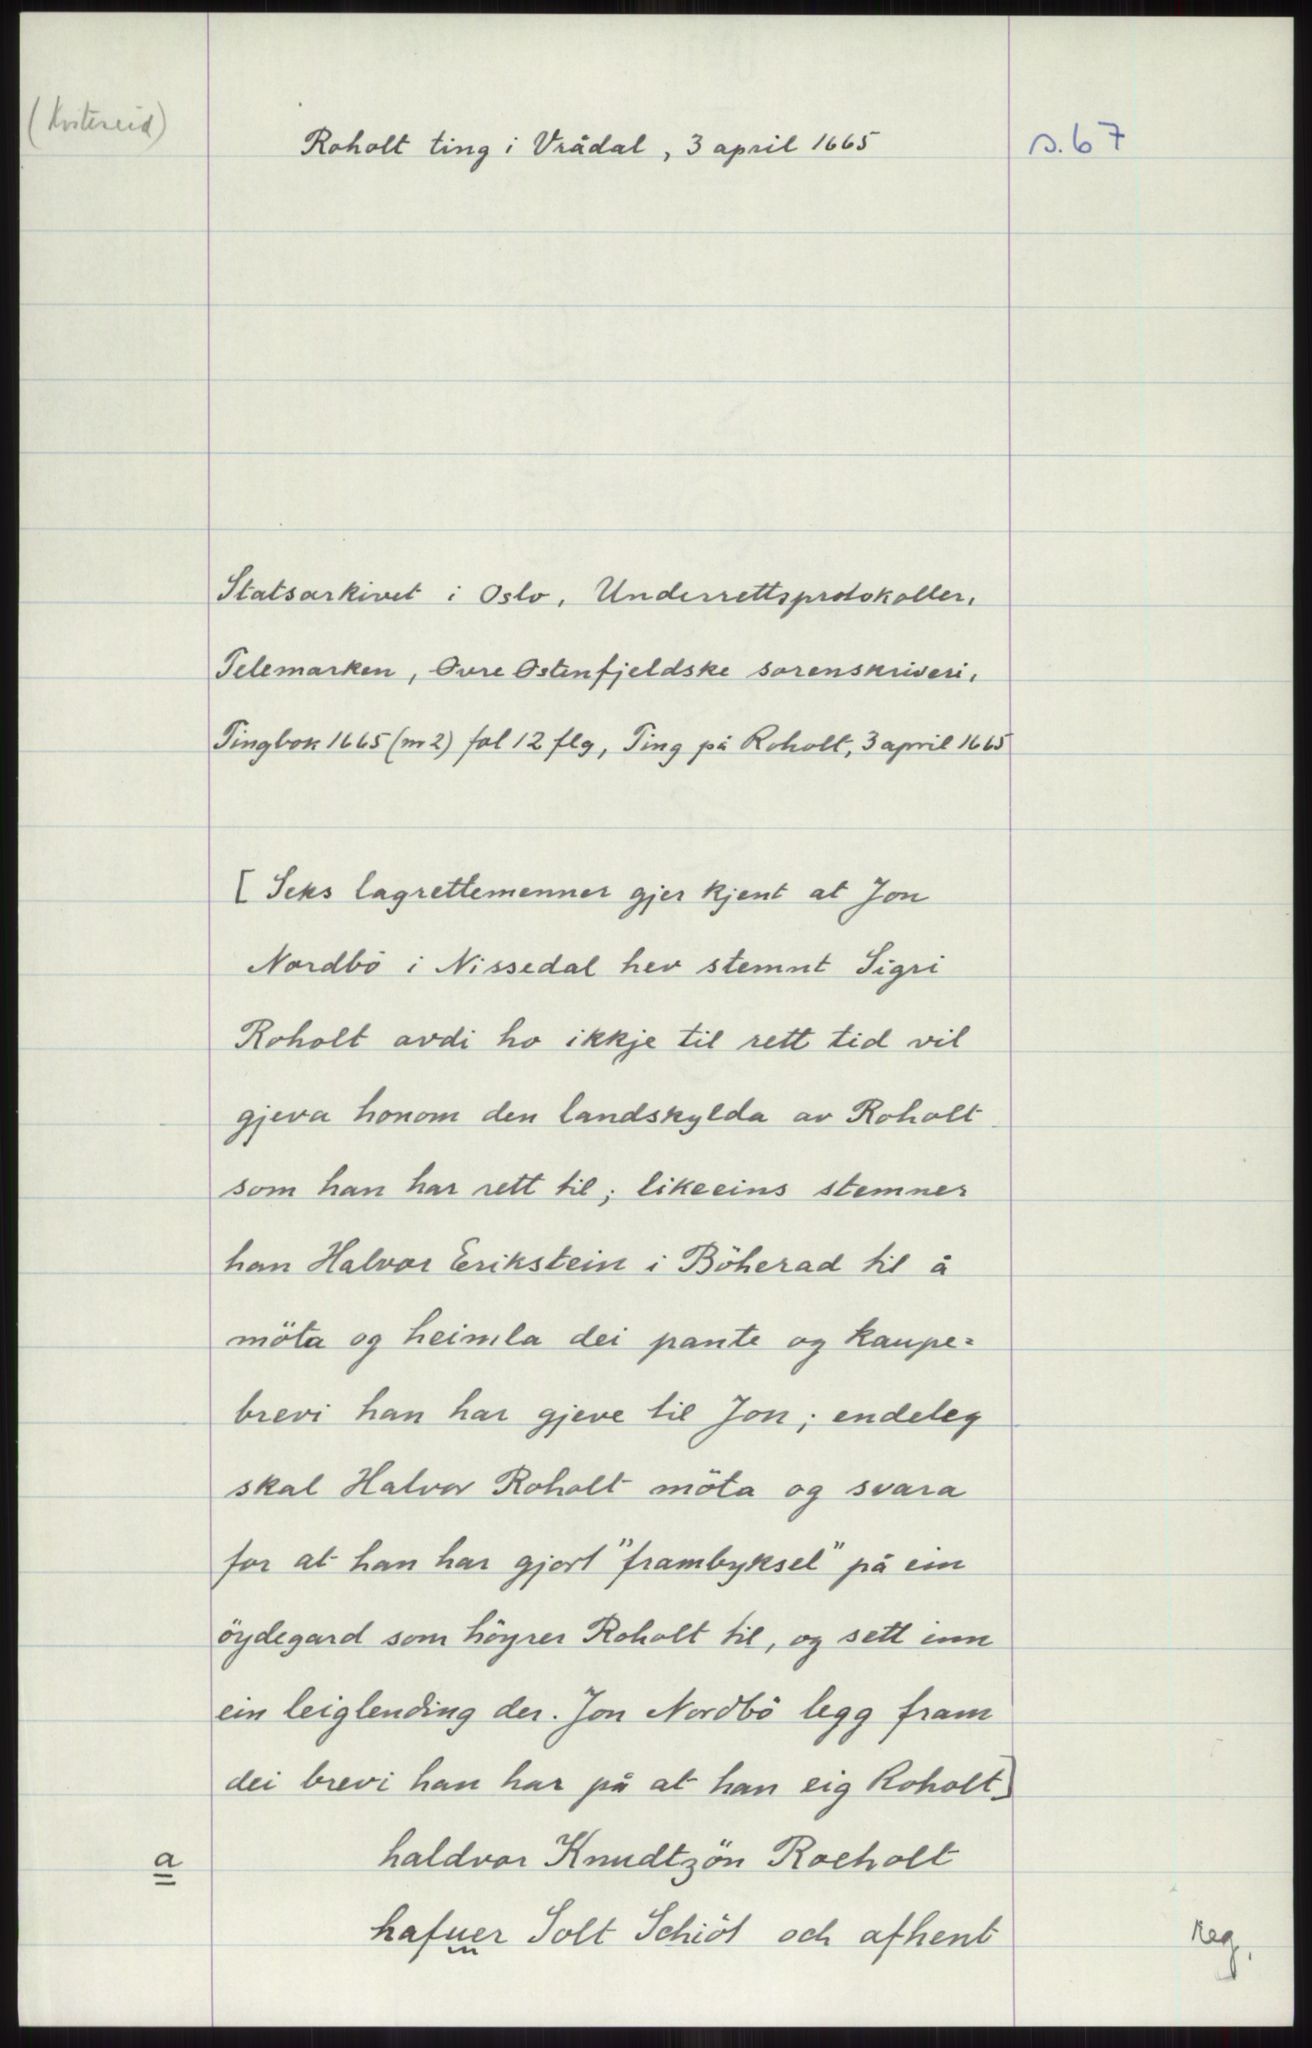 (Kvitereid)
Roholt ting i Vrådal, 3 april 1665
s. 67
Statsarkivet i Oslo, Underrettsprotokoller,
Telemarken, Øvre Østenfjeldske sorenskriveri,
Tingbok 1665 (nr 2) fol 12 flg, Ting på Roholt, 3 april 1665
[ Seks lagrettemenner gjer kjent at Jon
Nordbö i Nissedal hev stemnt Sigri
Roholt avdi ho ikkje til rett tid vil
gjeva honom den landskylda av Roholt
som han har rett til; likeeins stemner
han Halvor Erikstein i Böherad til å
möta og heimla dei pante og kaupe=
brevi han har gjeve til Jon; endeleg
skal Halvor Roholt möta og svara
for at han har gjort "frambyksel" på ein
öydegard som höyrer Roholt til, og sett inn
ein leiglending der. Jon Nordbö legg fram
dei brevi han har på at han eig Roholt]
a
haldvor Knudtzön Roeholt
hafuer Solt Schiöt och afhent
Reg.